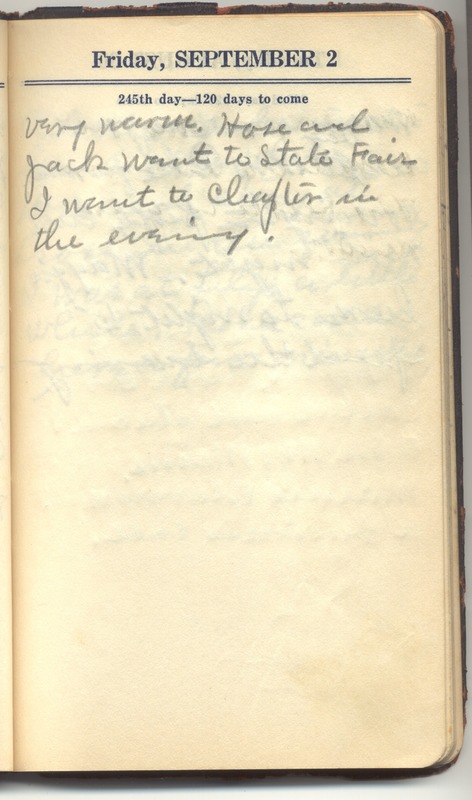 Friday, SEPTEMBER 2
245th day—120 days to come
very warm. Hose and
Jack went to State Fair
I went to Chapter in
the evening.